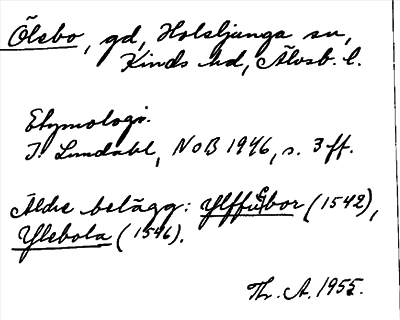 Ölsbo, gd, Holsljunga sn,
Kinds hd, Älvsb. l.
Etymologi.
I. Lundahl, NoB 1946, s. 3 ff.
Äldre belägg: Ylffsbor (1542),
Ylsbola (1546).
Th. A. 1955.